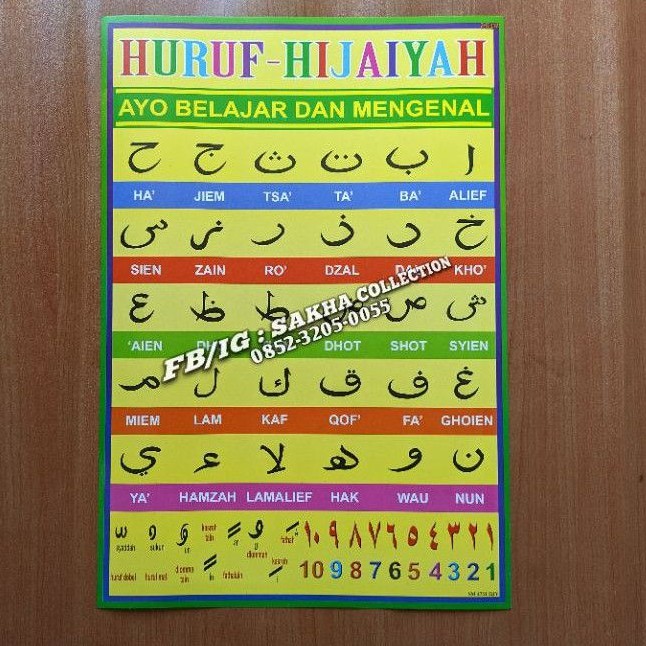 HURUF-HIJAIYAH
AYO BELAJAR DAN MENGENAL
ح ج ث ت ب ا
HA' JIEM TSA' TA' BA' ALIEF
س ز ر ذ د خ
SIEN ZAIN RO' DZAL KHO'
ع ظ ط ض ص ش
'AIEN DHOT SHOT SYIEN
FB/IG : SAKHA COLLECTION
0852-3205-0055
م ل ك ق ف غ
MIEM LAM KAF QOF' FA' GHOIEN
ي ء لا ه و ن
YA' HAMZAH LAMALIEF HAK WAU NUN
١٠ ٩ ٨ ٧ ٦ ٥ ٤ ٣ ٢ ١
syaddah sukun un kasrah tain an dlommah fathah
10 9 8 7 6 5 4 3 2 1
huruf dobel huruf mati dlomma tain in fathatain kasrah